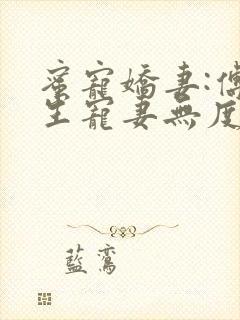 蜜寵嬌妻:傅
生寵妻無度
藍鸞